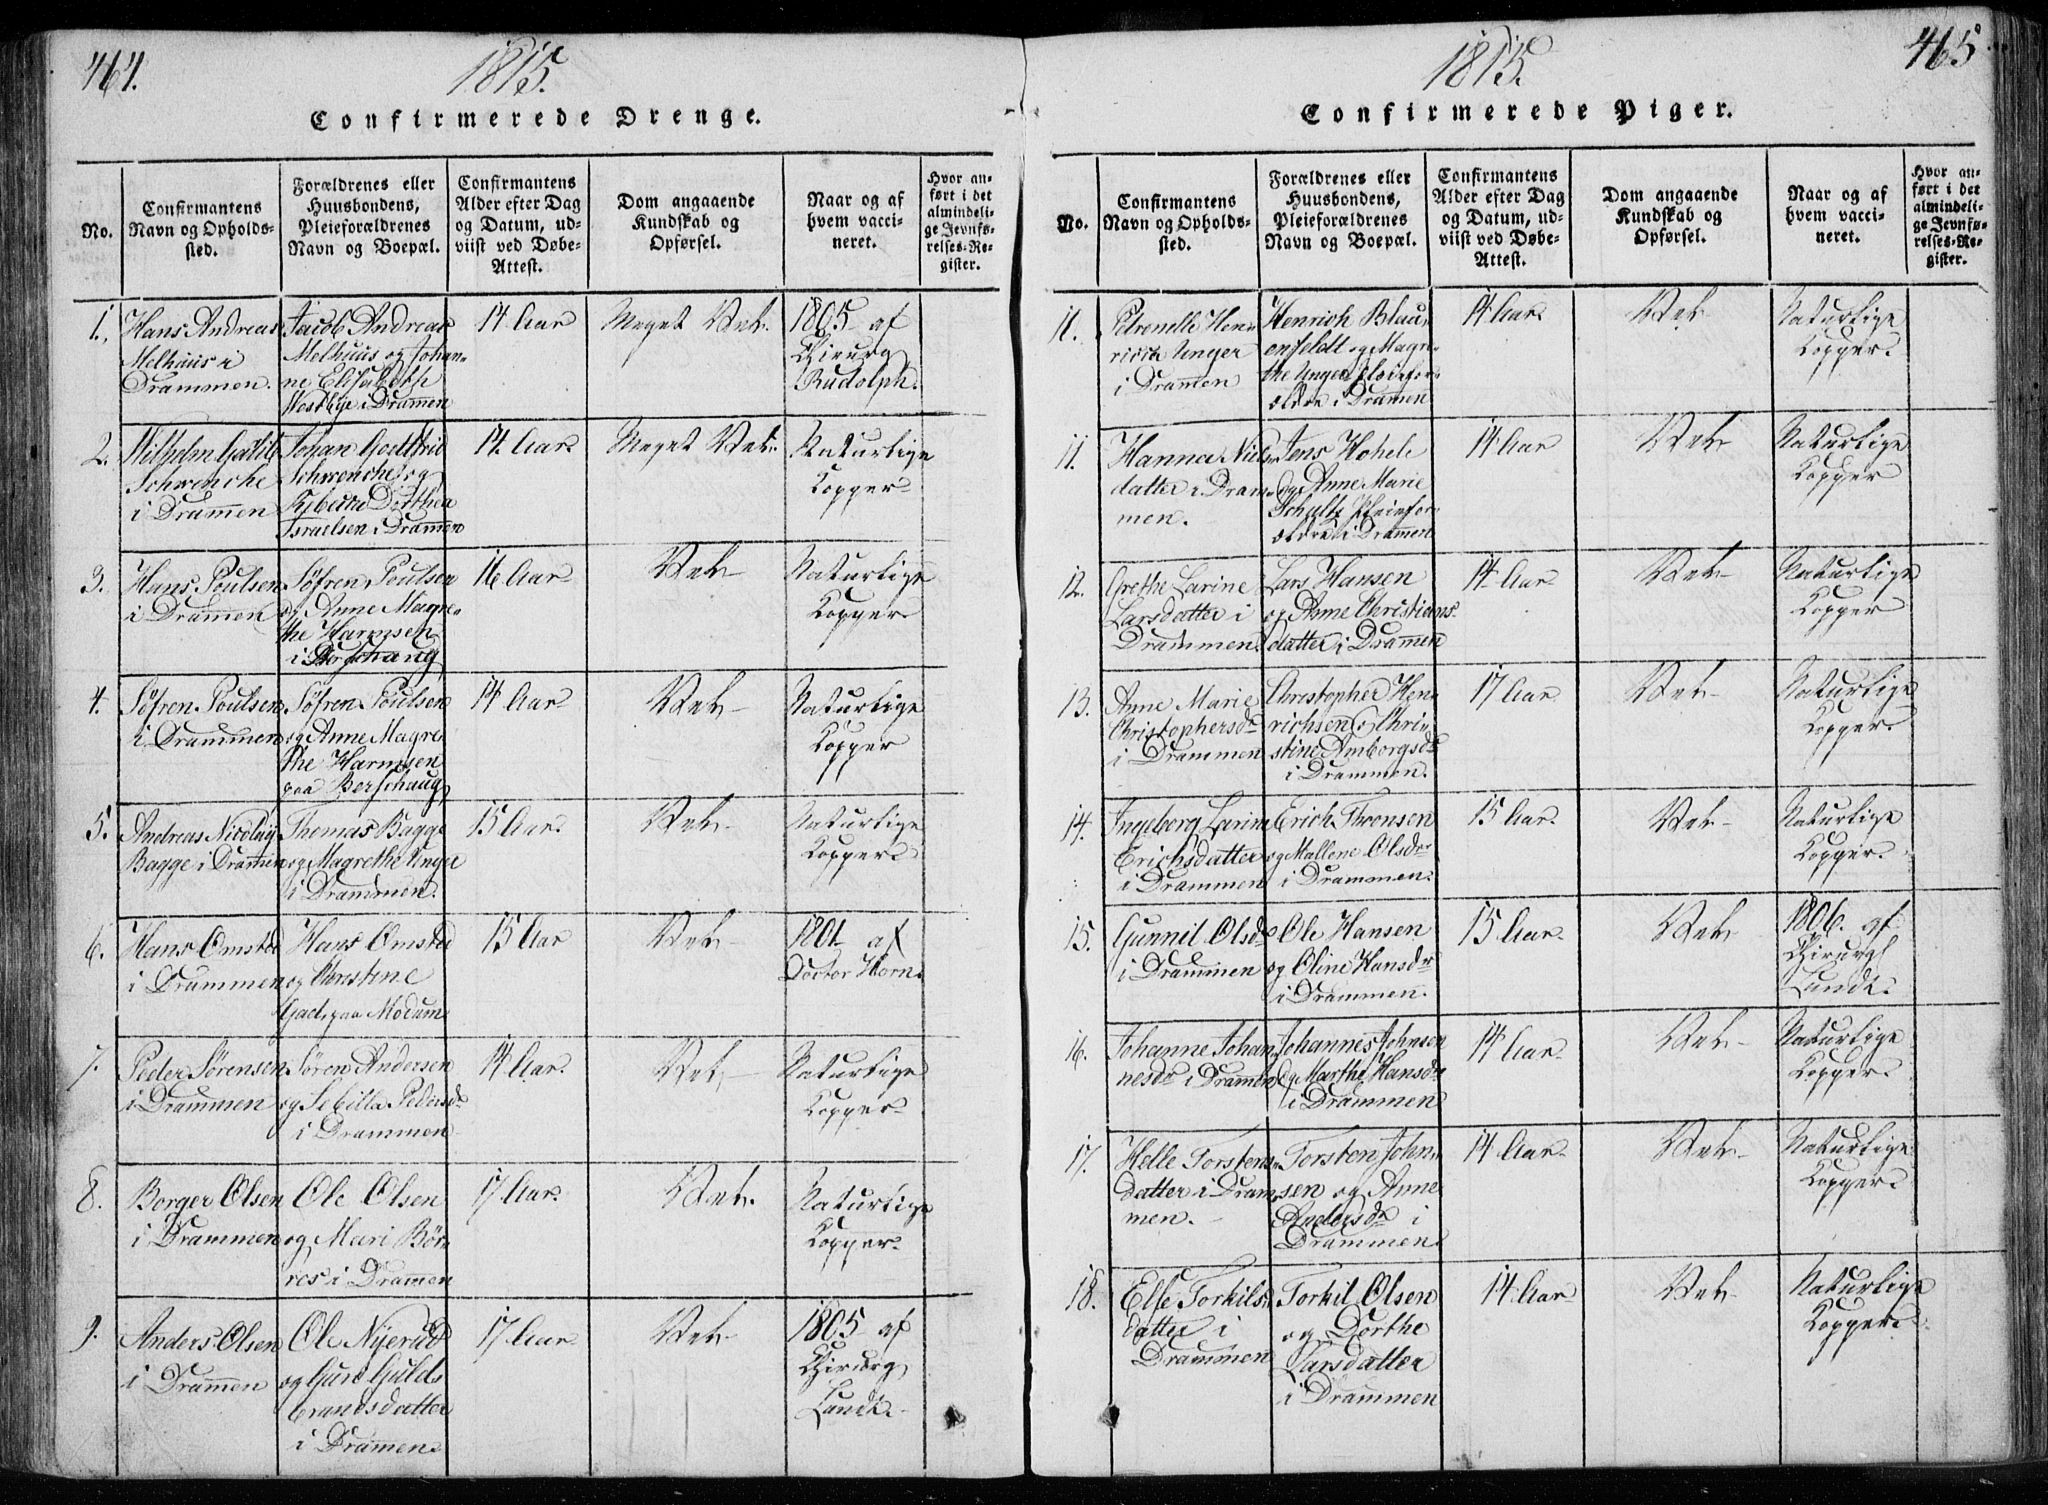 464.
1815.
Confirmerede Drenge.
No.
Confirmantens
Navn og Opholds-
sted.
Forældrenes eller
Huusbondens,
Pleieforældrenes
Navn og Boepæl.
Confirmantens
Alder efter Dag
og Datum, ud-
viist ved Døbe-
Attest.
Dom angaaende
Kundskab og
Opførsel.
Naar og af
hvem vacci-
neret.
Hvor an-
ført i det
almindeli-
ge Jevnfø-
relses-Re-
gister.
1.
Hans Andreas
Melhuus i
Drammen.
Jacob Andreas
Melhuus og Johan-
ne Elisabeth
Westbye i Dramen
14 Aar
Meget Vel.
1805 af
Chirurg
Rudolph.
2.
Wilhelm Gotlib
Schwenche
i Drammen
Johan Gottfrid
Schwenche og
Dorthea
Israelsen i Drammen
14. Aar.
Meget Vel.
Naturlige
Kopper
3.
Hans Poulsen
i Drammen
Søfren Poulsen
og Anne Magre-
the Harmsen
i
16 Aar
Vel
Naturlige
Kopper
4.
Søfren Poulsen
i Drammen
Søfren Poulsen
og Anne Magre
the Harmsen
paa Berschaug
14 Aar
Vel
Naturlige
Kopper
5.
Andreas Nicolay
Bagge i Drammen
Thomas Bagge
og Magrethe Unger
i Drammen.
15 Aar.
Vel
Naturlige
Kopper
6.
Hans Omsted
i Drammen
Hans Omsted
og Christine
Gad paa Modum
15 Aar
Vel
1801 af
Doctor Horn.
7.
Peder Sørensen
i Drammen
Søren Andersen
og Sibilla Pedersdr
i Drammen
14 Aar.
Vel
Naturlige
Kopper
8.
Borger Olsen
i Drammen
Ole Olsen
og Mari Bør-
res i Dramen
17 Aar.
Vel.
Naturlige
Kopper
9.
Anders Olsen
i Dramen
Ole Nyerud
og Guri Guld-
brandsdatter
i Dramen
17 Aar
Vel
1805 af
Chirurg
Lunde
465
1815.
Confirmerede Piger.
No.
Confirmantens
Navn og Opholds-
sted.
Forældrenes eller
Huusbondens,
Pleieforældrenes
Navn og Boepæl.
Confirmantens
Alder efter Dag
og Datum, ud-
viist ved Døbe-
Attest.
Dom angaaende
Kundskab og
Opførsel.
Naar og af
hvem vacci-
neret.
Hvor an-
ført i det
almindeli-
ge Jevnfø-
relses-Re-
gister.
11.
Petronelle Hen-
rich Unger
i Dramen
Henrich Blau-
enfeldt og Magre-
the Unger Pleiefor-
ældre i Dramen
14 Aar.
Vel
Naturlige
Kopper
11.
Hanna Niels-
datter i Dram-
men.
Jens Hohele
og Anne Marie
Schultz Pleiefor-
ældre i Dramen
14 Aar
Vel
Naturlige
Kopper
12.
Grethe Larine
Larsdatter i
Drammen.
Lars Hansen
og Anne Christians-
datter i Drammen
14 Aar.
Vel
Naturlige
Kopper
13.
Anne Marie
Christophersdr
i Drammen
Christopher Hen-
richsen og Chri-
stine Amborgsdr
i Drammen.
17 Aar
Vel
Naturlige
Kopper
14.
Ingeborg Larine
Erichsdatter
i Drammen
Erich Thronsen
og Mallene Olsdr
i Drammen.
15 Aar.
Vel
Naturlige
Kopper
15.
Gunnil Olsdr
i Drammen
Ole Hansen
og Oline Hansdr
i Drammen.
15 Aar.
Vel
1806. af
Chirurg
Lunde
16.
Johanne Johan-
nesdr i Drammen
Johannes Johnsen
og Marthe Hansdr
i Drammen
14 Aar.
Vel
Naturlige
Kopper
17.
Helle Torstens-
datter i Dram-
men.
Torsten John-
sen og Anne
Andersdr i
Drammen
14 Aar.
Vel
Naturlige
Kopper
18.
Else Torkils-
datter i
Drammen
Torkil Olsen
og Dorthe
Larsdatter
i Drammen
14 Aar
Vel
Naturlige
Kopper